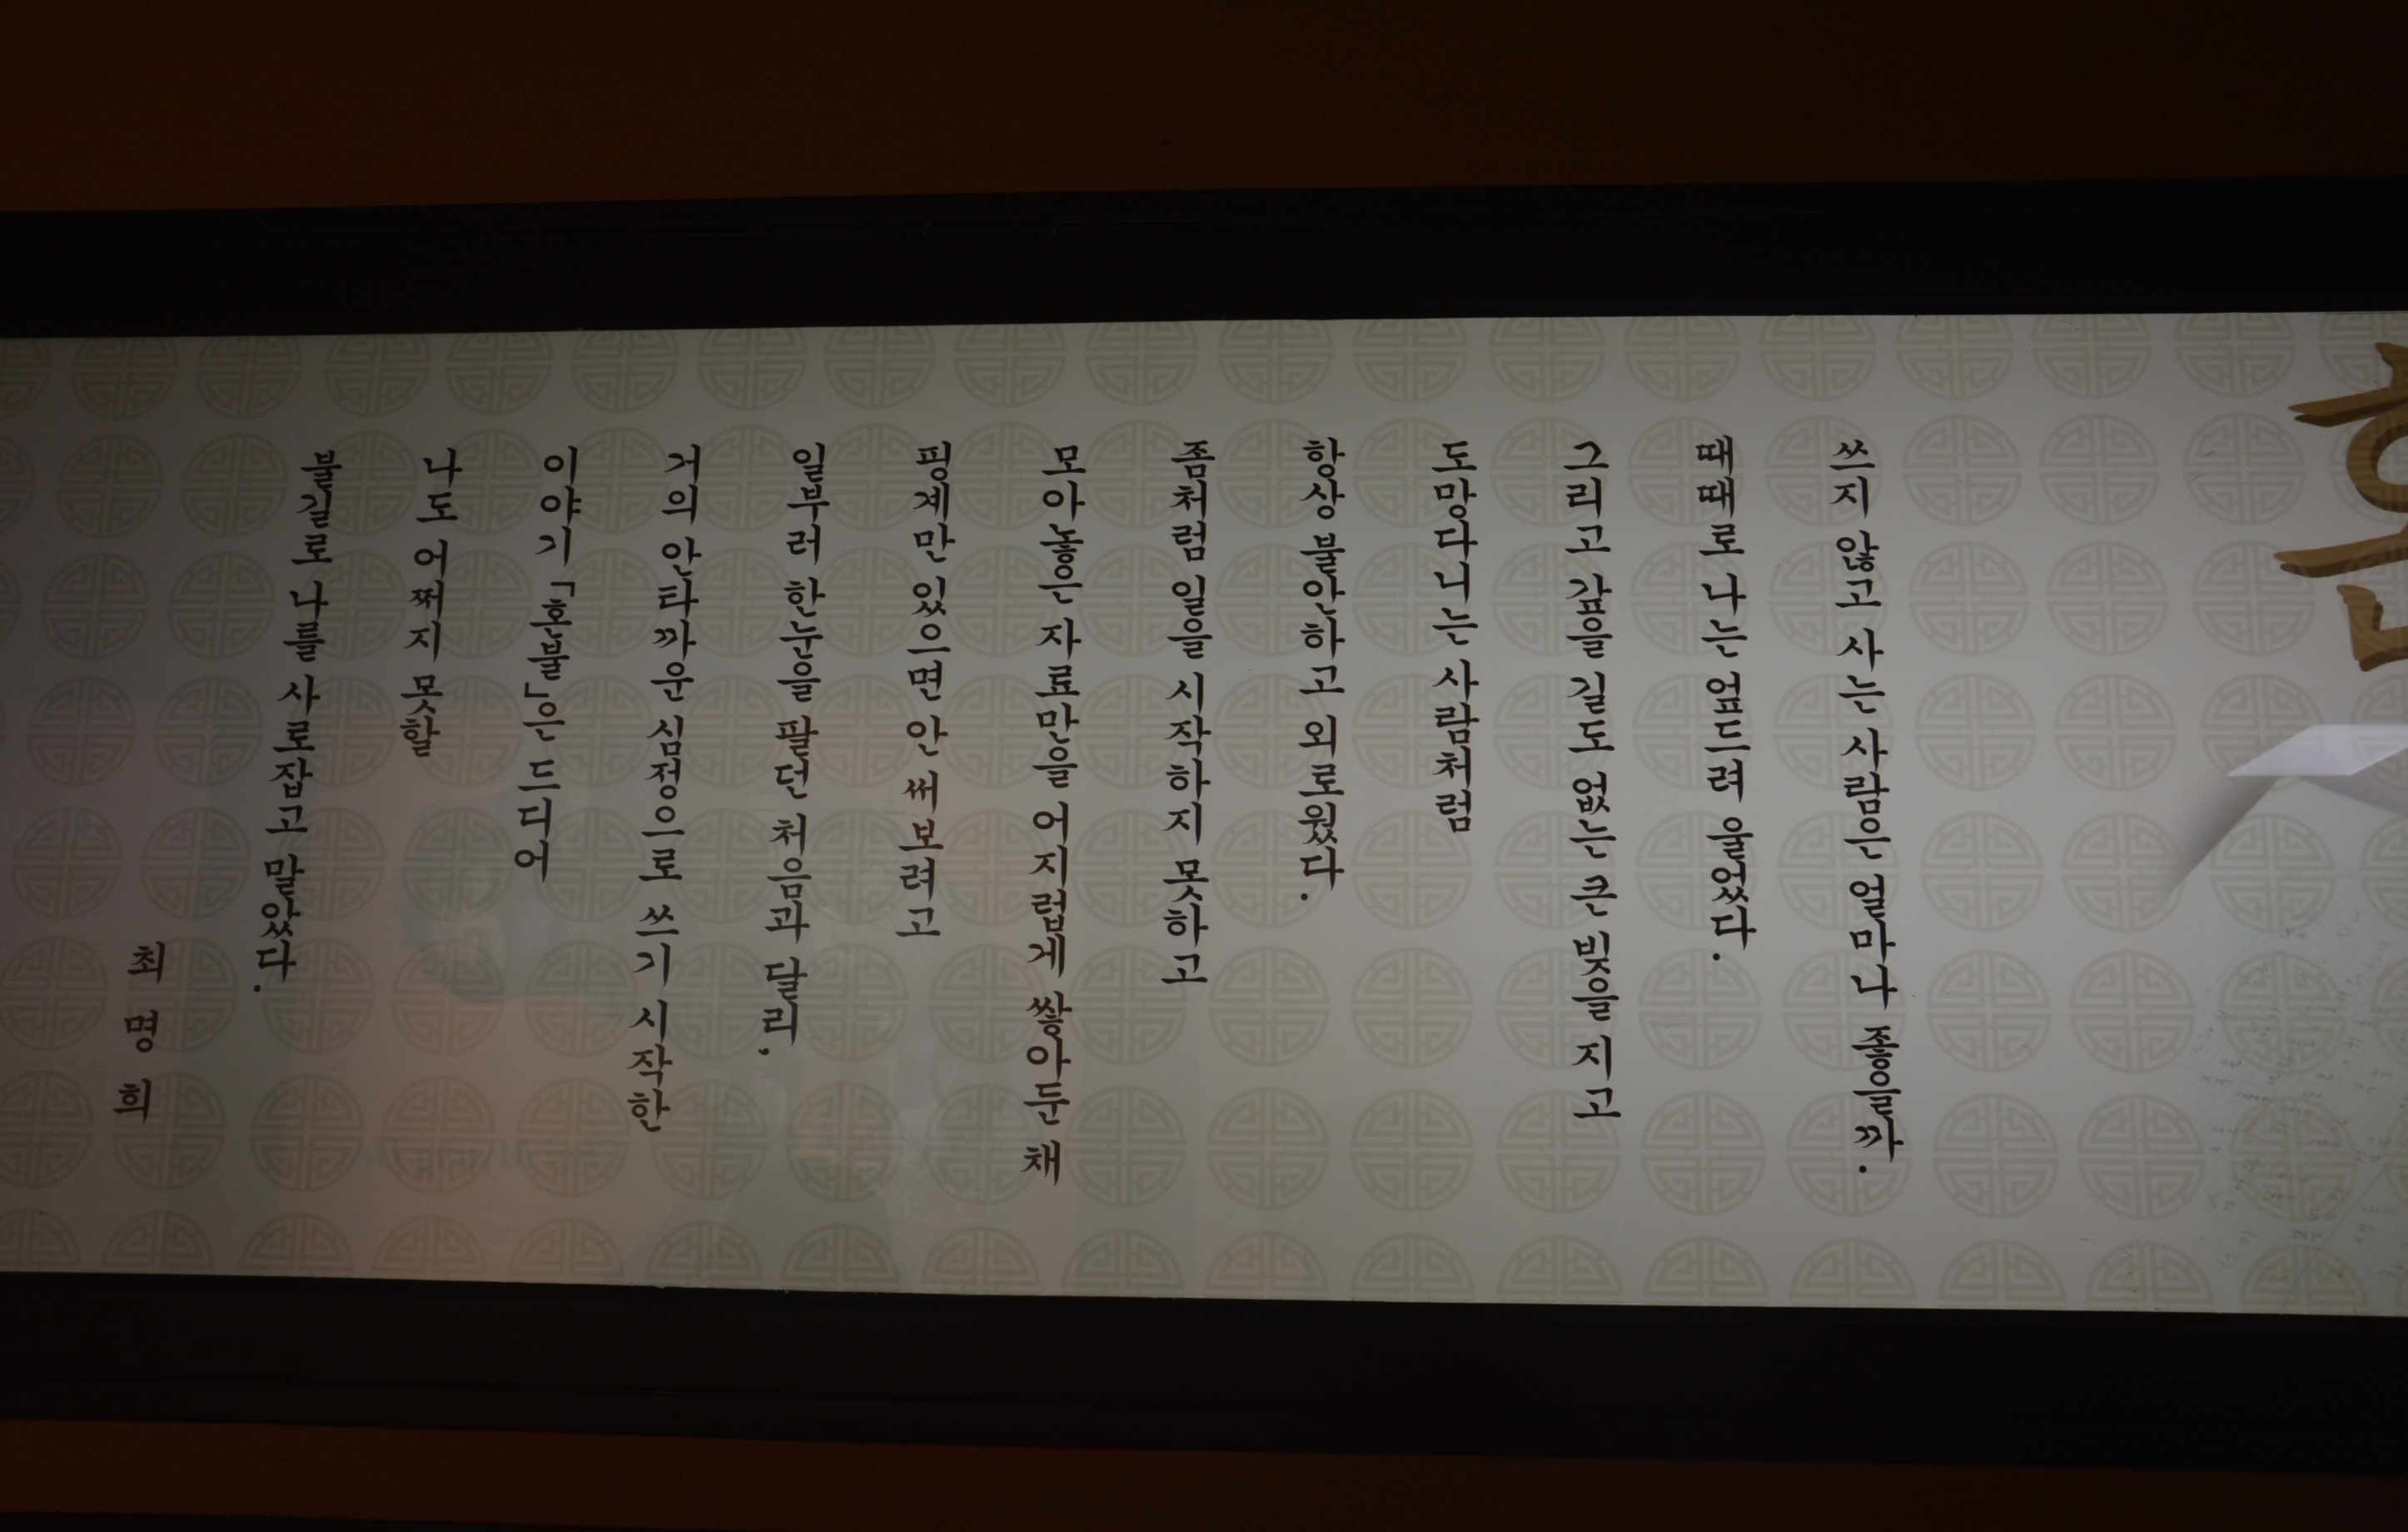 쓰지 않고 사는 사람은 얼마나 좋을까.
때때로 나는 엎드려 울었다.
그리고 갚을 길도 없는 큰 빚을 지고
도망다니는 사람처럼
항상 불안하고 외로웠다.
좀처럼 일을 시작하지 못하고
모아놓은 자료만을 어지럽게 쌓아둔 채
핑계만 있으면 안 써보려고
일부러 한눈을 팔던 처음과 달리.
거의 안타까운 심정으로 쓰기 시작한
이야기 「혼불」은 드디어
나도 어쩌지 못할
불길로 나를 사로잡고 말았다.
최명희